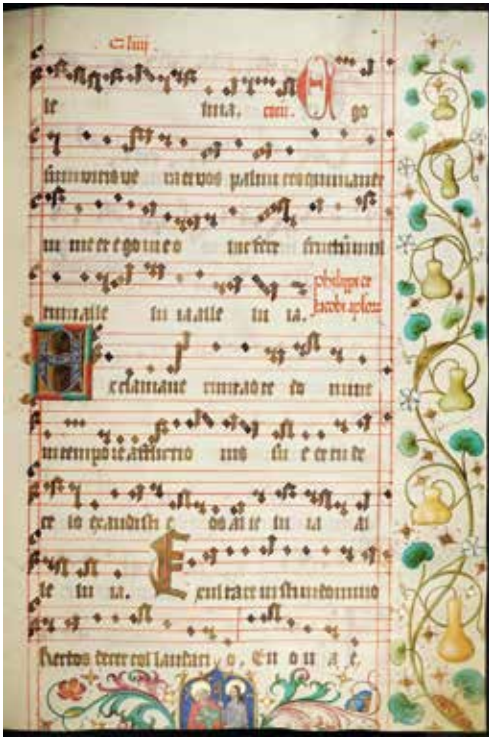 le luia. com. Ego
sum vitis ve ra et vos palmites qui manet
in me et ego in eo hic fert fructū mul
tum alle lu ia alle lu ia. philippi et
Jacobi
Exclamave runt ad te do mine
in tempore afflictio nis su e et tu de
ce lo exaudisti e os al le lu ia al
le lu ia. Exultate iusti in domino
Rectos decet collaudati o. Eu ou a e.